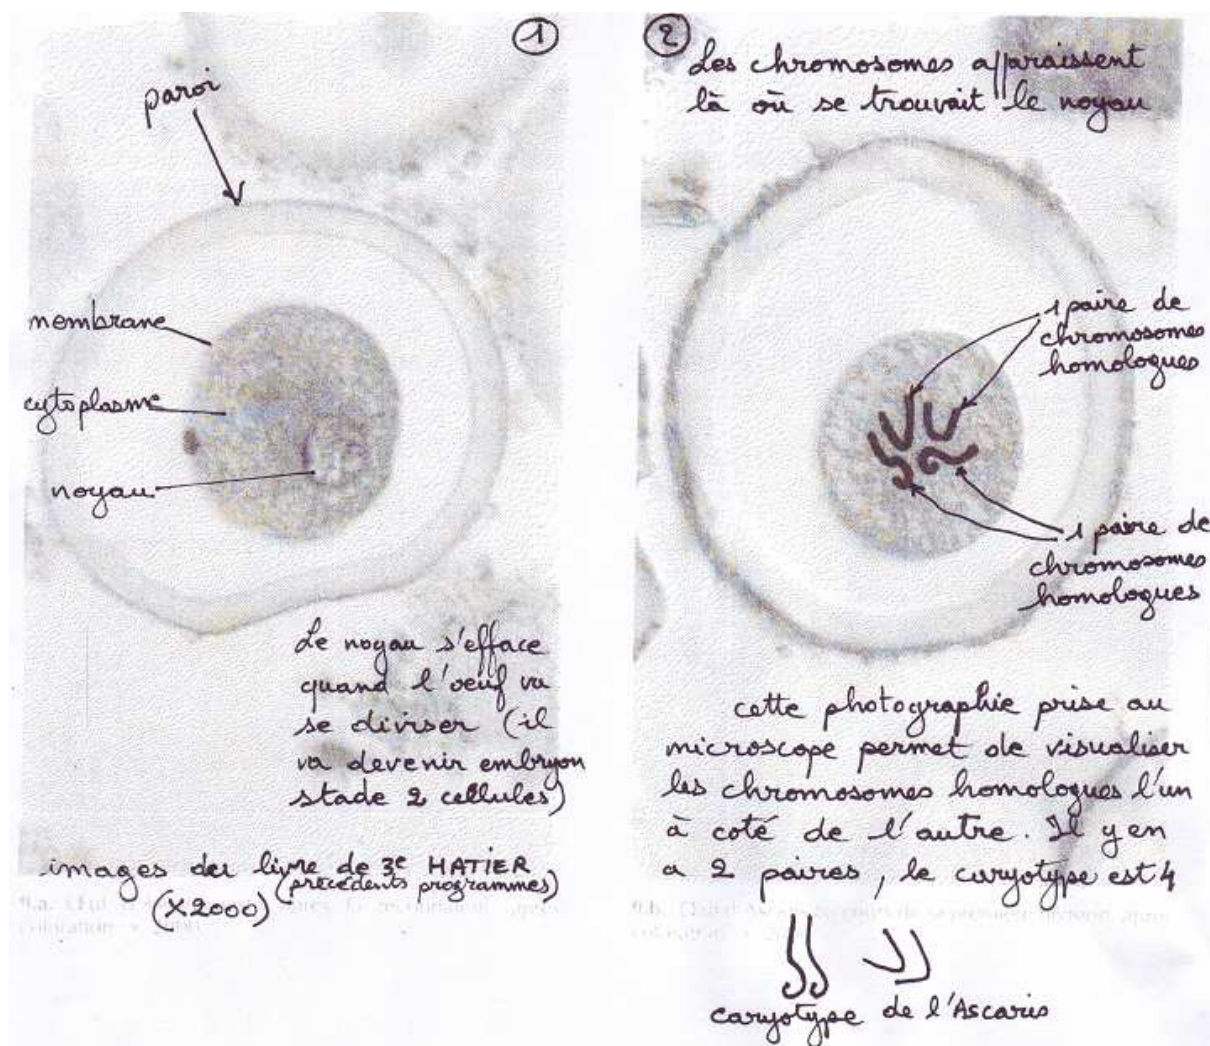 1
paroi
membrane
cytoplasme
noyau
Le noyau s'efface
quand l'oeuf va
se diviser (il
va devenir embryon
stade 2 cellules)
images du livre de 3e HATIER
(précédents programmes)
(X2000)
2
Les chromosomes apparaissent
là où se trouvait le noyau
1 paire de
chromosomes
homologues
1 paire de
chromosomes
homologues
cette photographie prise au
microscope permet de visualiser
les chromosomes homologues l'un
à coté de l'autre. Il y en
a 2 paires, le caryotype est 4
caryotype de l'Ascaris